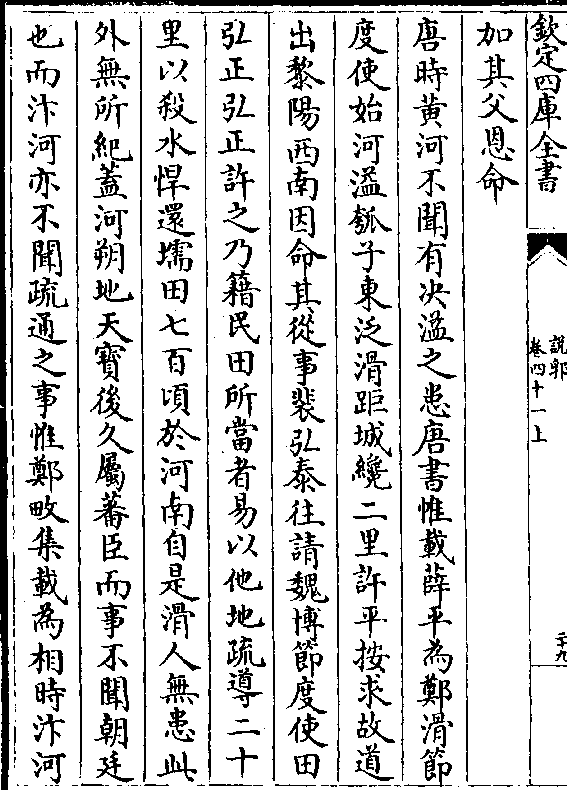 欽定四庫全書
說郛
卷四十一上
二十九
加其父恩命
唐時黄河不聞有決溢之患唐書惟載薛平為鄭滑節
度使始河溢瓠子東泛滑距城纔二里許平按求故道
出黎陽西南因命其從事裴弘泰往請魏博節度使田
弘正弘正許之乃籍民田所當者易以他地疏導二十
里以殺水悍還壖田七百頃於河南自是滑人無患此
外無所紀蓋河朔地天寶後久屬蕃臣而事不聞朝廷
也而汴河亦不聞疏通之事惟鄭畋集載為相時汴河